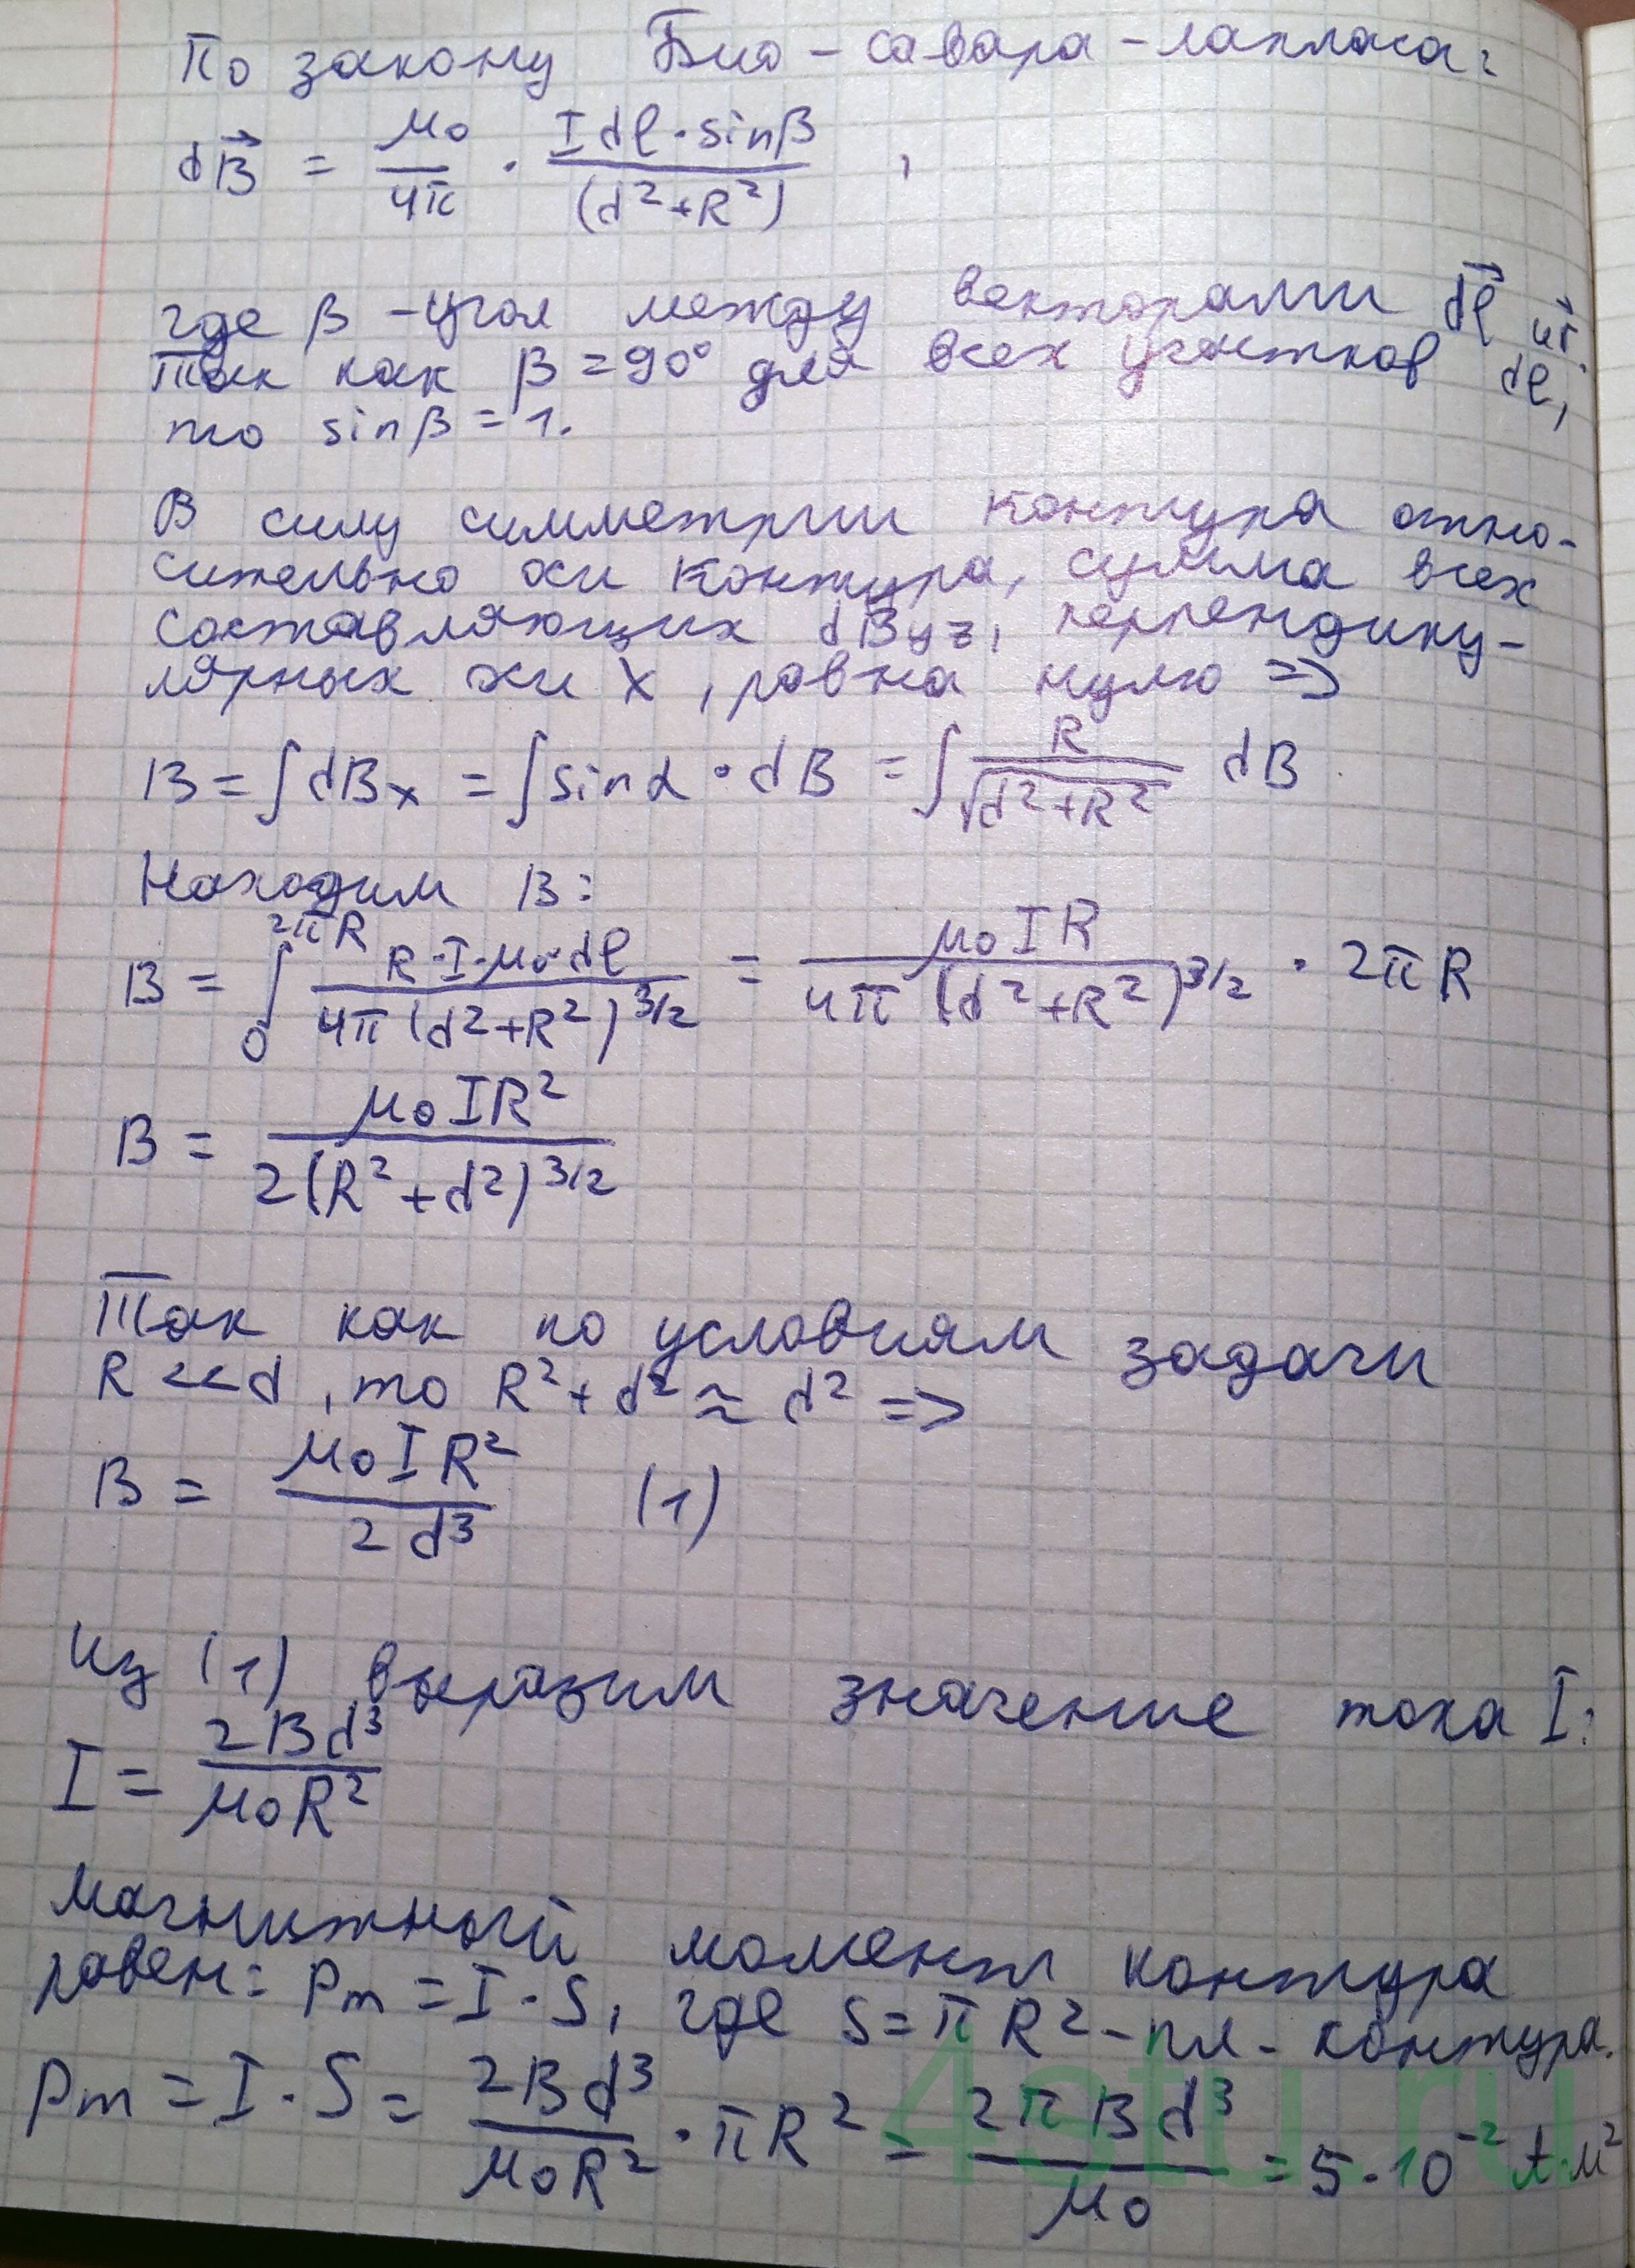 По закону Био - савара - лапласа:
dB⃗ = μ₀/4π · I dℓ · sinβ/(d²+R²) ,
где β - угол между векторами dℓ⃗ и r⃗.
Так как β = 90° для всех участков dℓ,
то sinβ = 1.
В силу симметрии контура отно-
сительно оси контура, сумма всех
составляющих dByz, перпендику-
лярных оси X, равна нулю =>
B = ∫dBx = ∫sinα · dB = ∫ R/√(d²+R²) dB
Находим B:
B = ∫₀^2πR R·I·μ₀·dℓ/4π(d²+R²)^3/2 = μ₀IR/4π(d²+R²)^3/2 · 2πR
B = μ₀IR²/2(R²+d²)^3/2
Так как по условиям задачи
R<<d, то R²+d² ≈ d² =>
B = μ₀IR²/2d³ (1)
Из (1) выразим значение тока I:
I = 2Bd³/μ₀R²
Магнитный момент контура
равен: Pm = I·S, где S=πR² - пл. контура.
Pm = I·S = 2Bd³/μ₀R² · πR² = 2πBd³/μ₀ = 5·10⁻² А·м²
4stu.ru